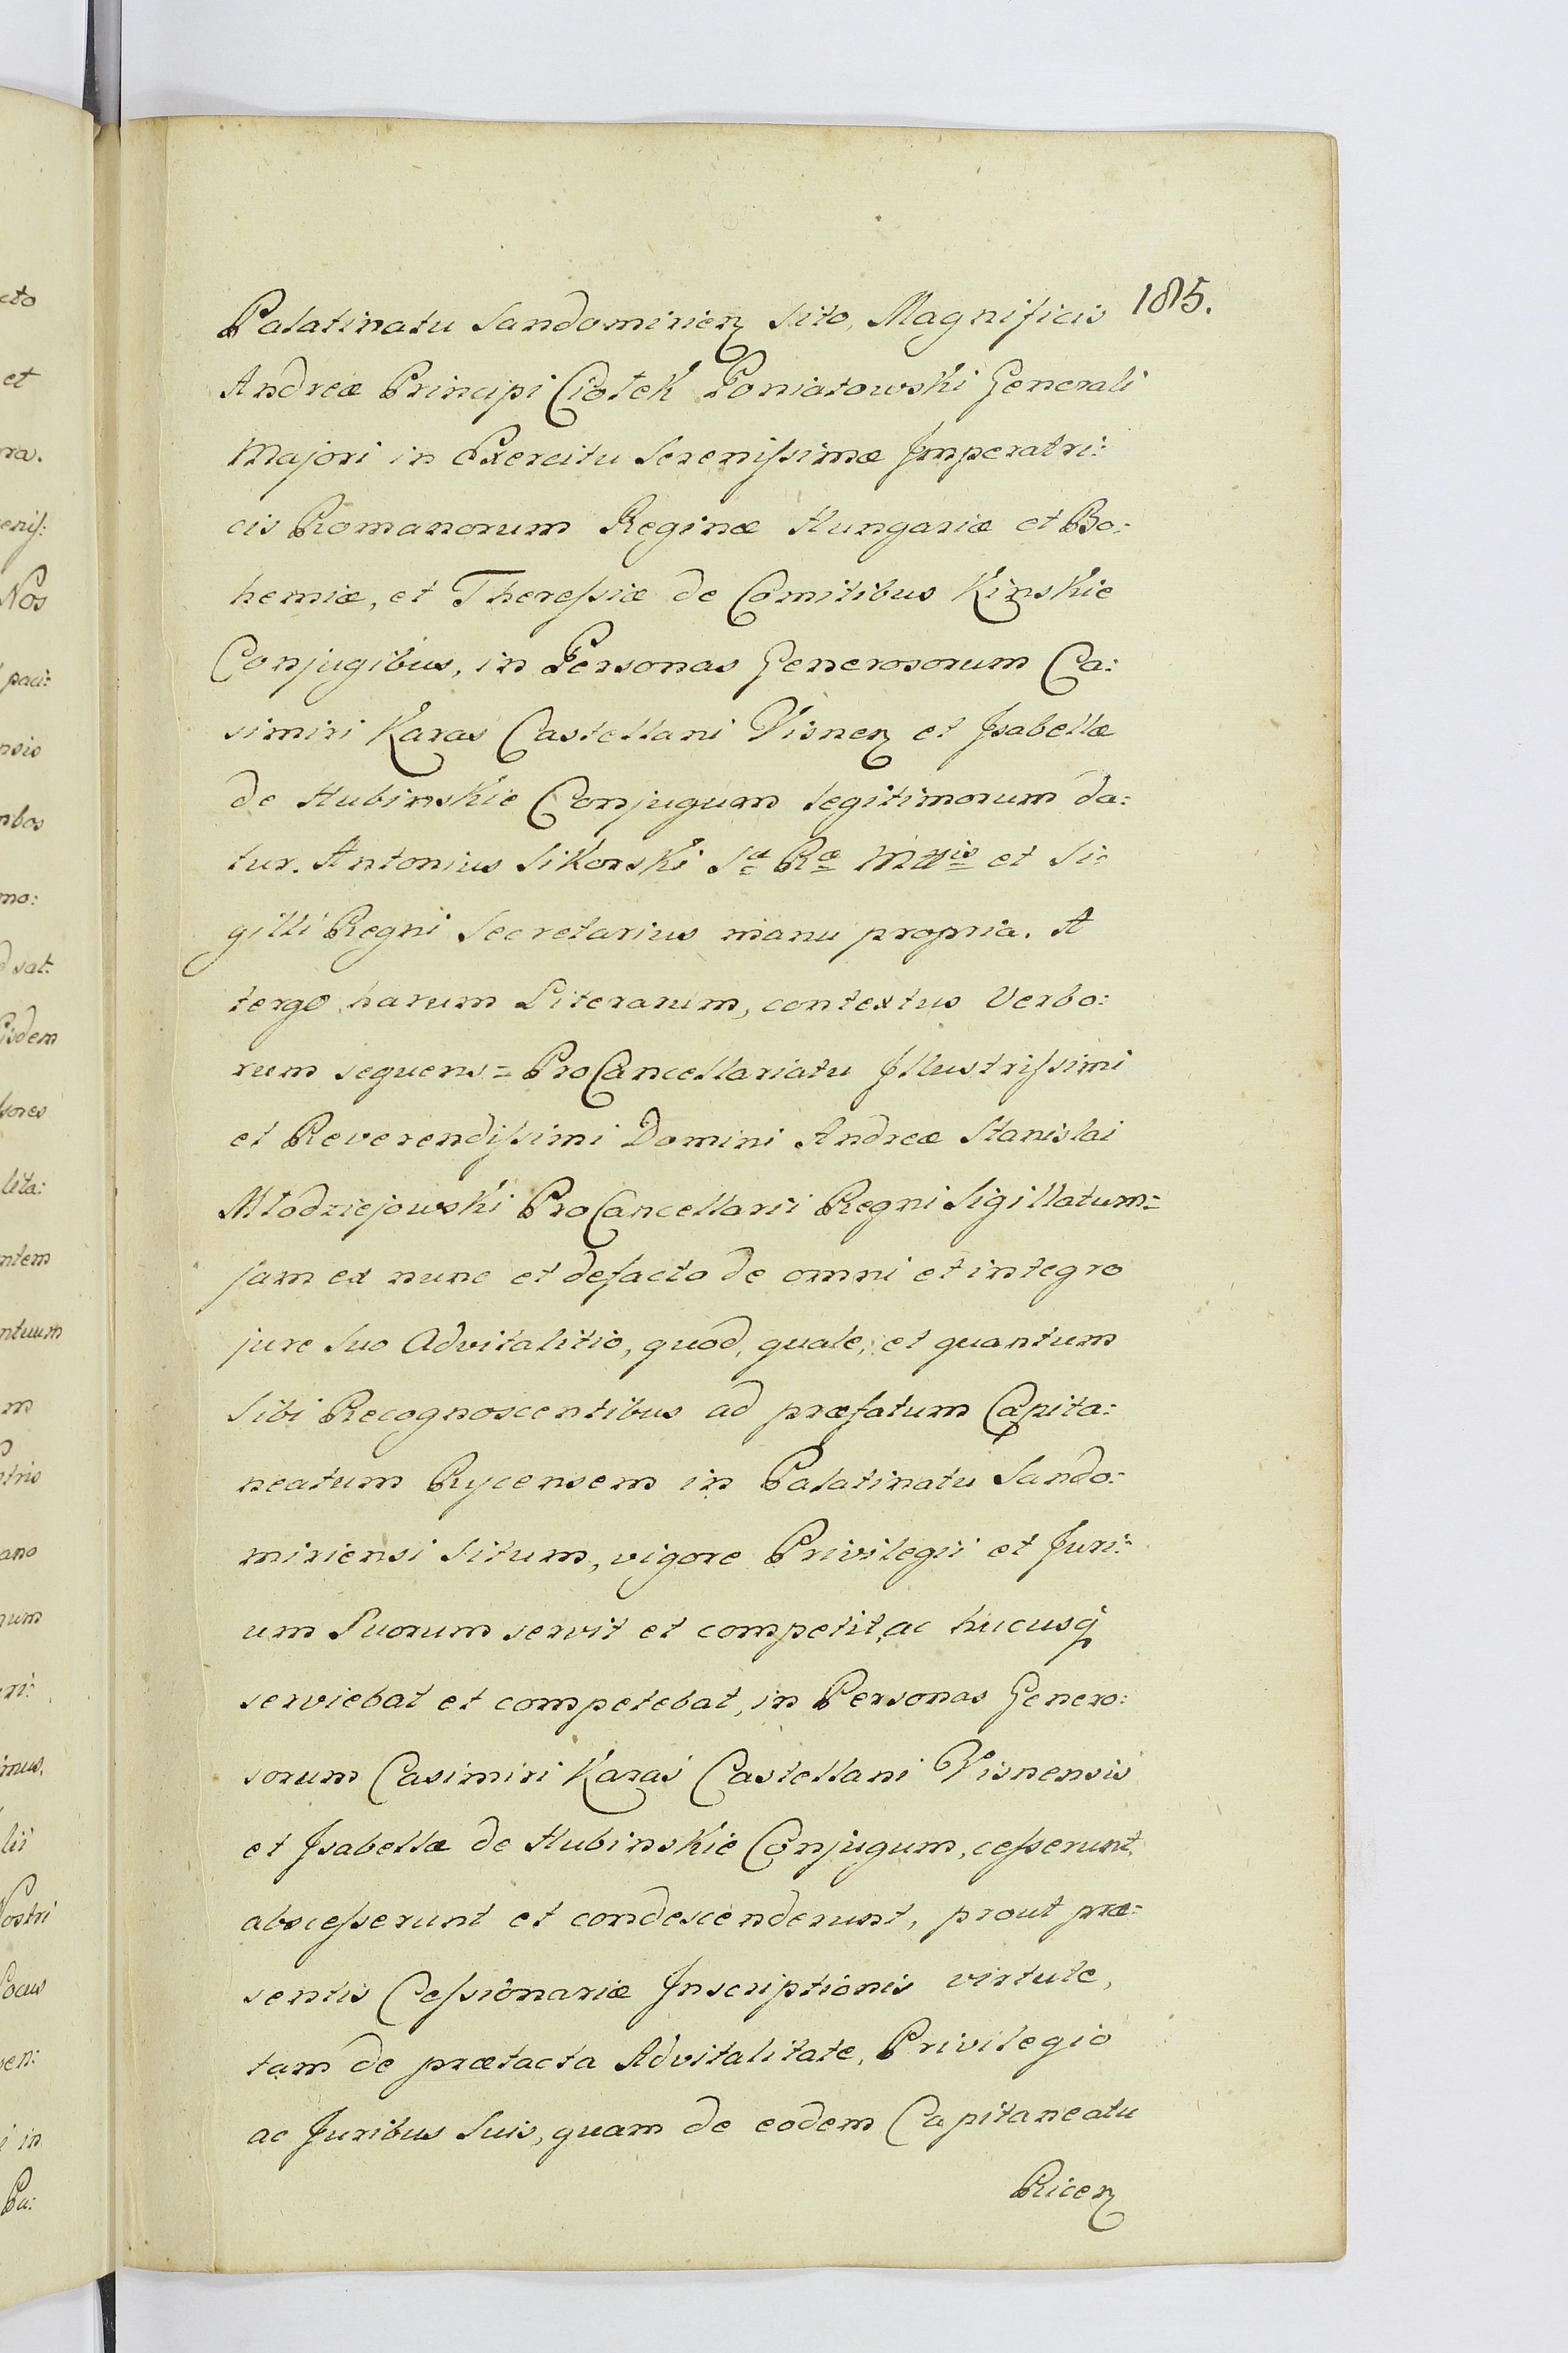 185.
Palatinatu Sandomirien sito, Magnificis
Andreæ Principi Ciołek Poniatowski Generali
Majori in Exercitu Serenissimæ Imperatri:
cis Romanorum Reginæ Hungariæ et Bo:
hemiæ, et Theressiæ de Comitibus Kinskie
Conjugibus, in Personas Generosorum Ca:
simiri Karas Castellani Visnen et Isabellæ
de Hubinskie Conjugum legitimorum da:
tur. Antonius Sikorski Sæ Ræ Mttis et Si:
gilli Regni Secretarius manu propria. A
tergo harum Literarum, contextus Verbo:
rum sequens = ProCancellariatu Illustrissimi
et Reverendissimi Domini Andreæ Stanislai
Młodziejowski ProCancellarii Regni Sigillatum =
jam ex nunc et defacto de omni et integro
jure suo Advitalitio, quod, quale, et quantum
Sibi Recognoscentibus ad præfatum Capita:
neatum Rycensem in Palatinatu Sando:
miriensi Situm, vigore Privilegii et Juri:
um Suorum servit et competit, ac hucusq
serviebat et competebat, in Personas Genero:
sorum Casimiri Karaś Castellani Visnensis
et Isabellæ de Hubinskie Conjugum, cesserunt,
abscesserunt et condescenderunt, prout præ:
sentis Cessionariæ Inscriptionis virtute,
tam de prætacta Advitalitate, Privilegio
ac Juribus Suis, quam de eodem Capitaneatu
Ricen
cto
et
ra.
enis:
Nos
paci:
nsis
mbos
mo:
d sat:
Eisdem
sores
lita:
ntem
ntuum
m
tris
ano
num
ri:
imus,
lii
Nostri
Locus
sen:
i in
Pa: